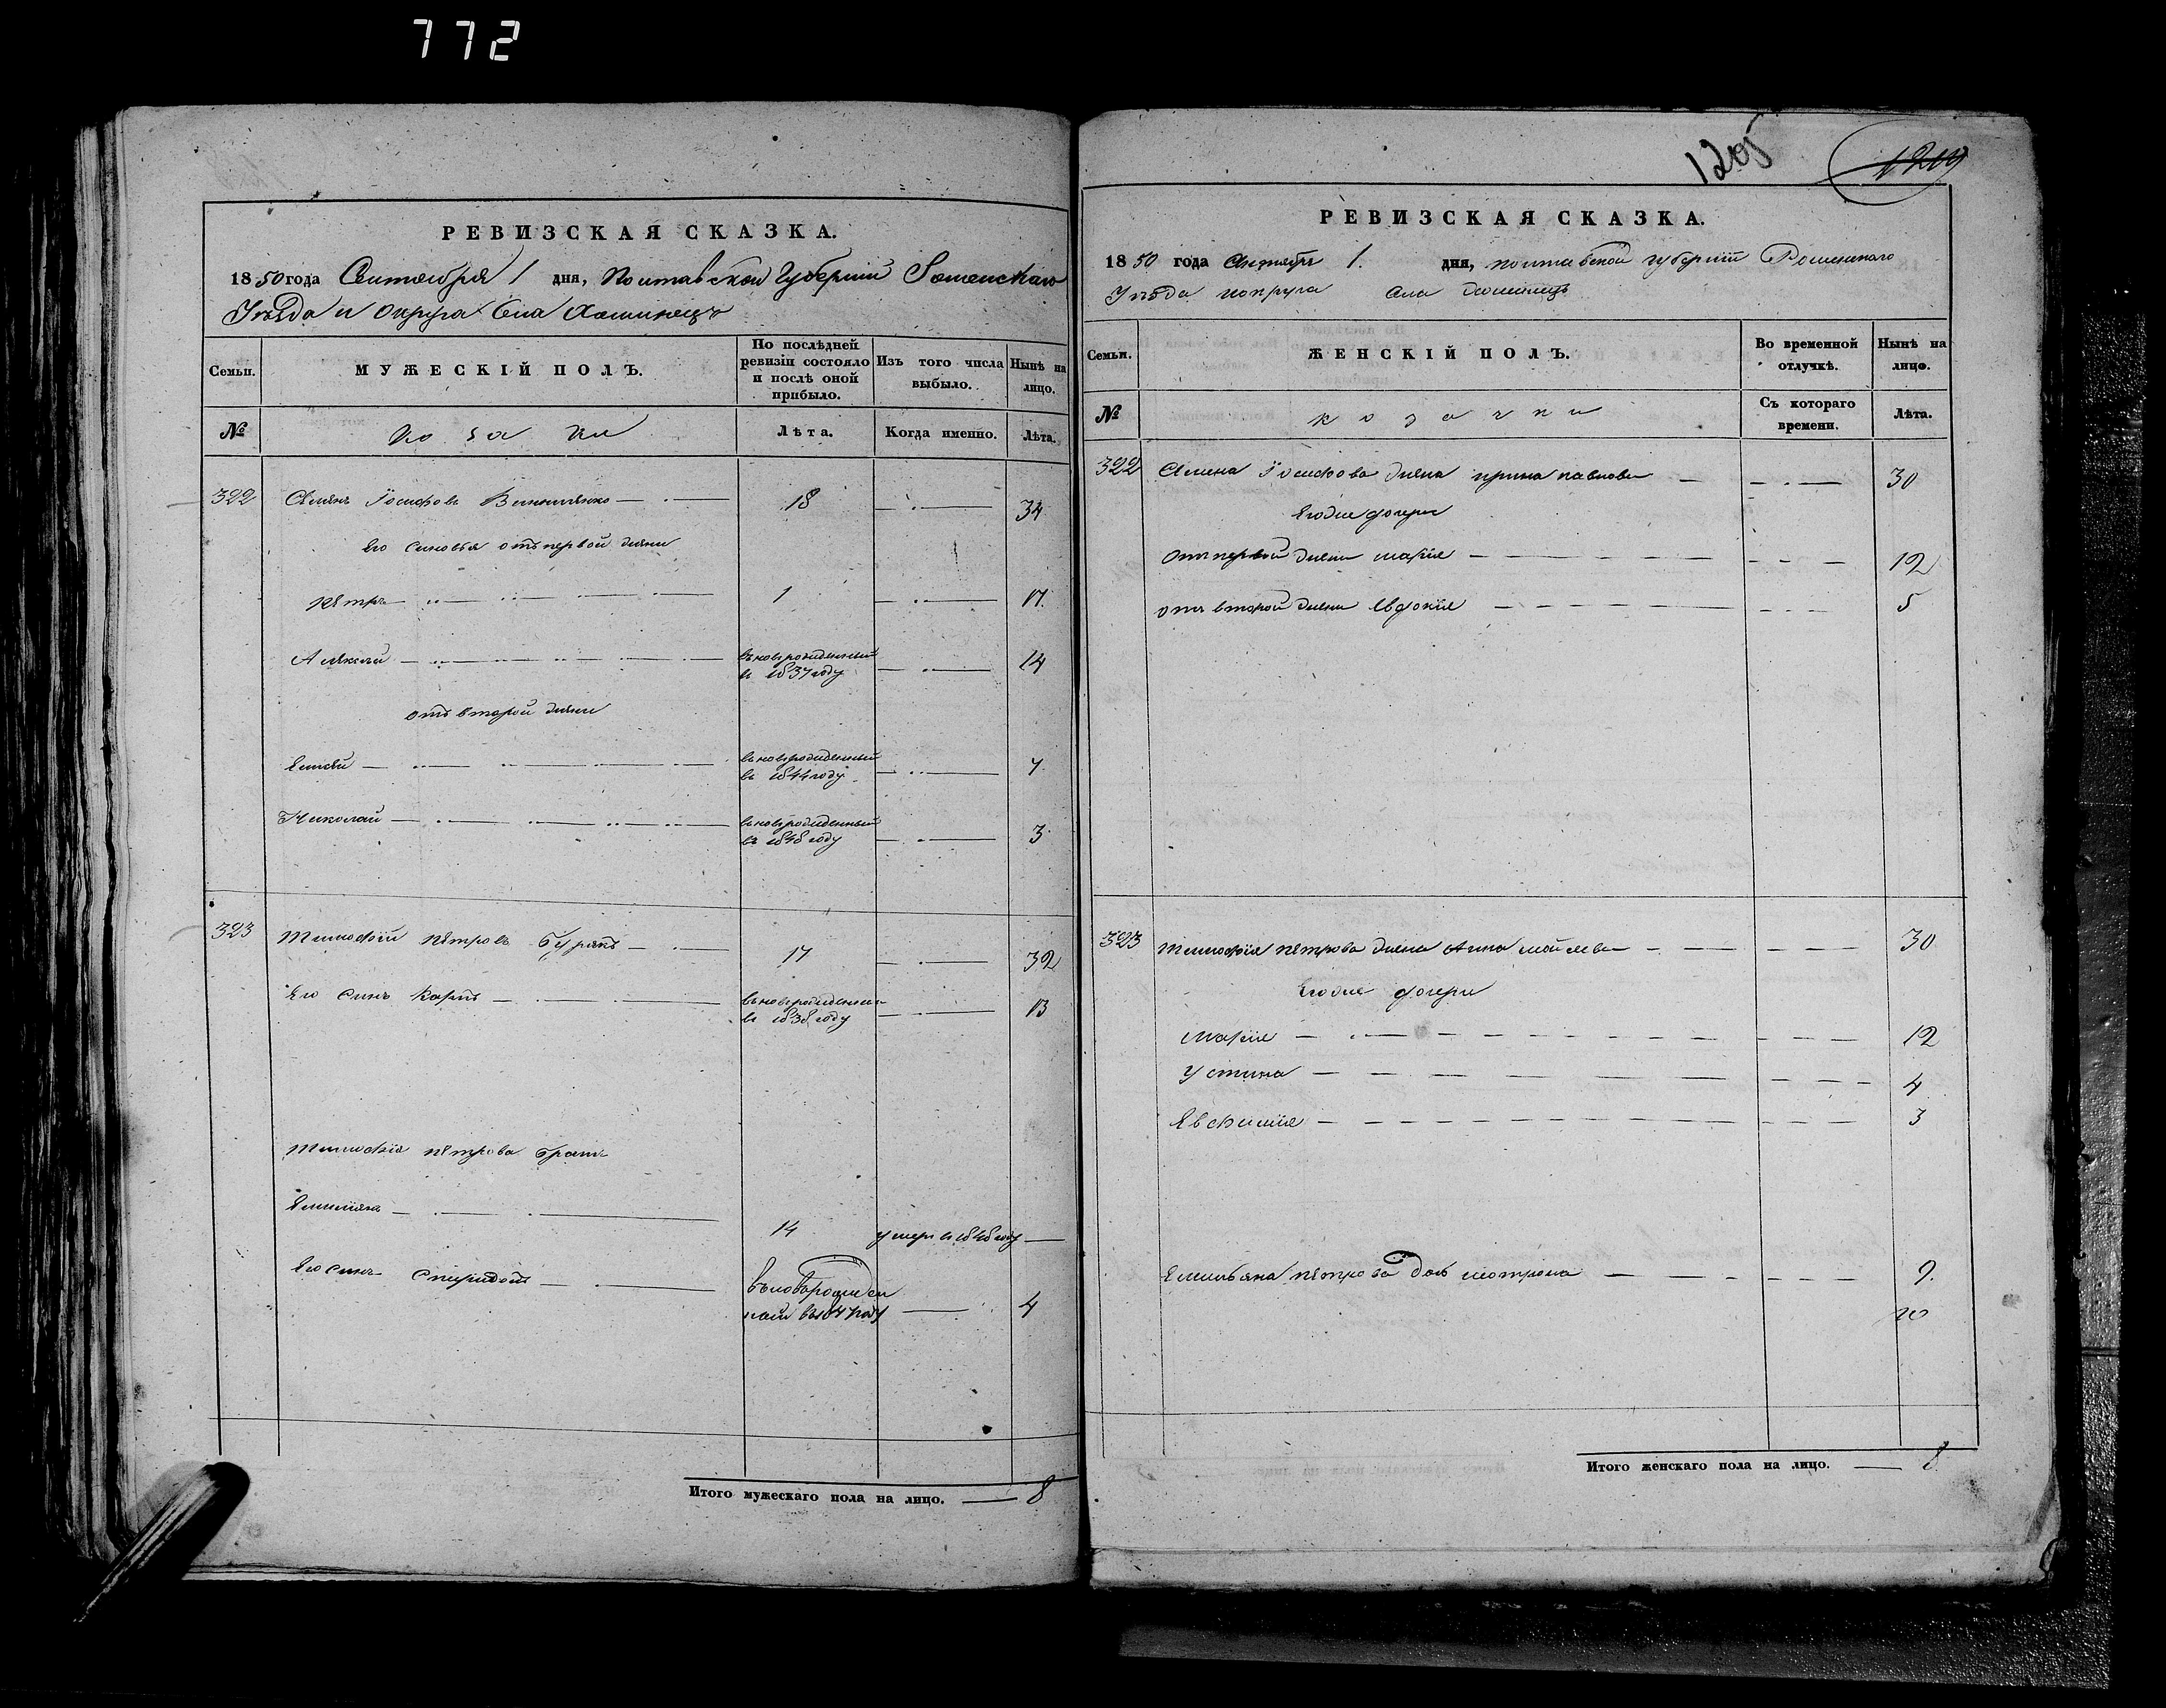 772
РЕВИЗСКАЯ СКАЗКА.
1850 года Сентября 1 дня, Полтавской Губернии Роменскаго
Уезда и Округа Села
Семьи. МУЖЕСКІЙ ПОЛЪ. По послѣдней ревизіи состояло и послѣ оной прибыло. Изъ того числа выбыло. Нынѣ на лицо.
№ Козаки Лѣта. Когда именно. Лѣта.
322 Іосифовъ 18 34
его синовья отъ первой жени
Петръ 1 17
Алексей въновърожденный въ 1837 году 14
отъ второй жени
Елисей въновърожденный въ 1844 году 7
Николай въновърожденный въ 1848 году 3
323 Тимофій Петровъ Бурякъ 17 32
Его синъ Карпъ въновърожденный въ 1838 году 13
Тимофія Петрова братъ
Емилиянъ 14 умеръ в 1848 году
Его синъ Спиридонъ въновърожденной въ 1847 году 4
Итого мужескаго пола на лицо. 8
1205
1209
РЕВИЗСКАЯ СКАЗКА.
1850 года 1. дня, Полтавской губернии Роменскаго
Уезда и округа села
Семьи. ЖЕНСКІЙ ПОЛЪ. Во временной отлучкѣ. Нынѣ на лицо.
№ козачки Съ котораго времени. Лѣта.
322 Іосифова жена Ирина Павлова 30
Егоже дочери
от первой жени Марія 12
отъ второй жени Евдокія 5
323 Тимофія Петрова жена Анна 30
Егоже дочери
Марія 12
Устина 4
Евфимія 3
Емильяна Петрова дочь Мотрона 9.
Итого женскаго пола на лицо. 8